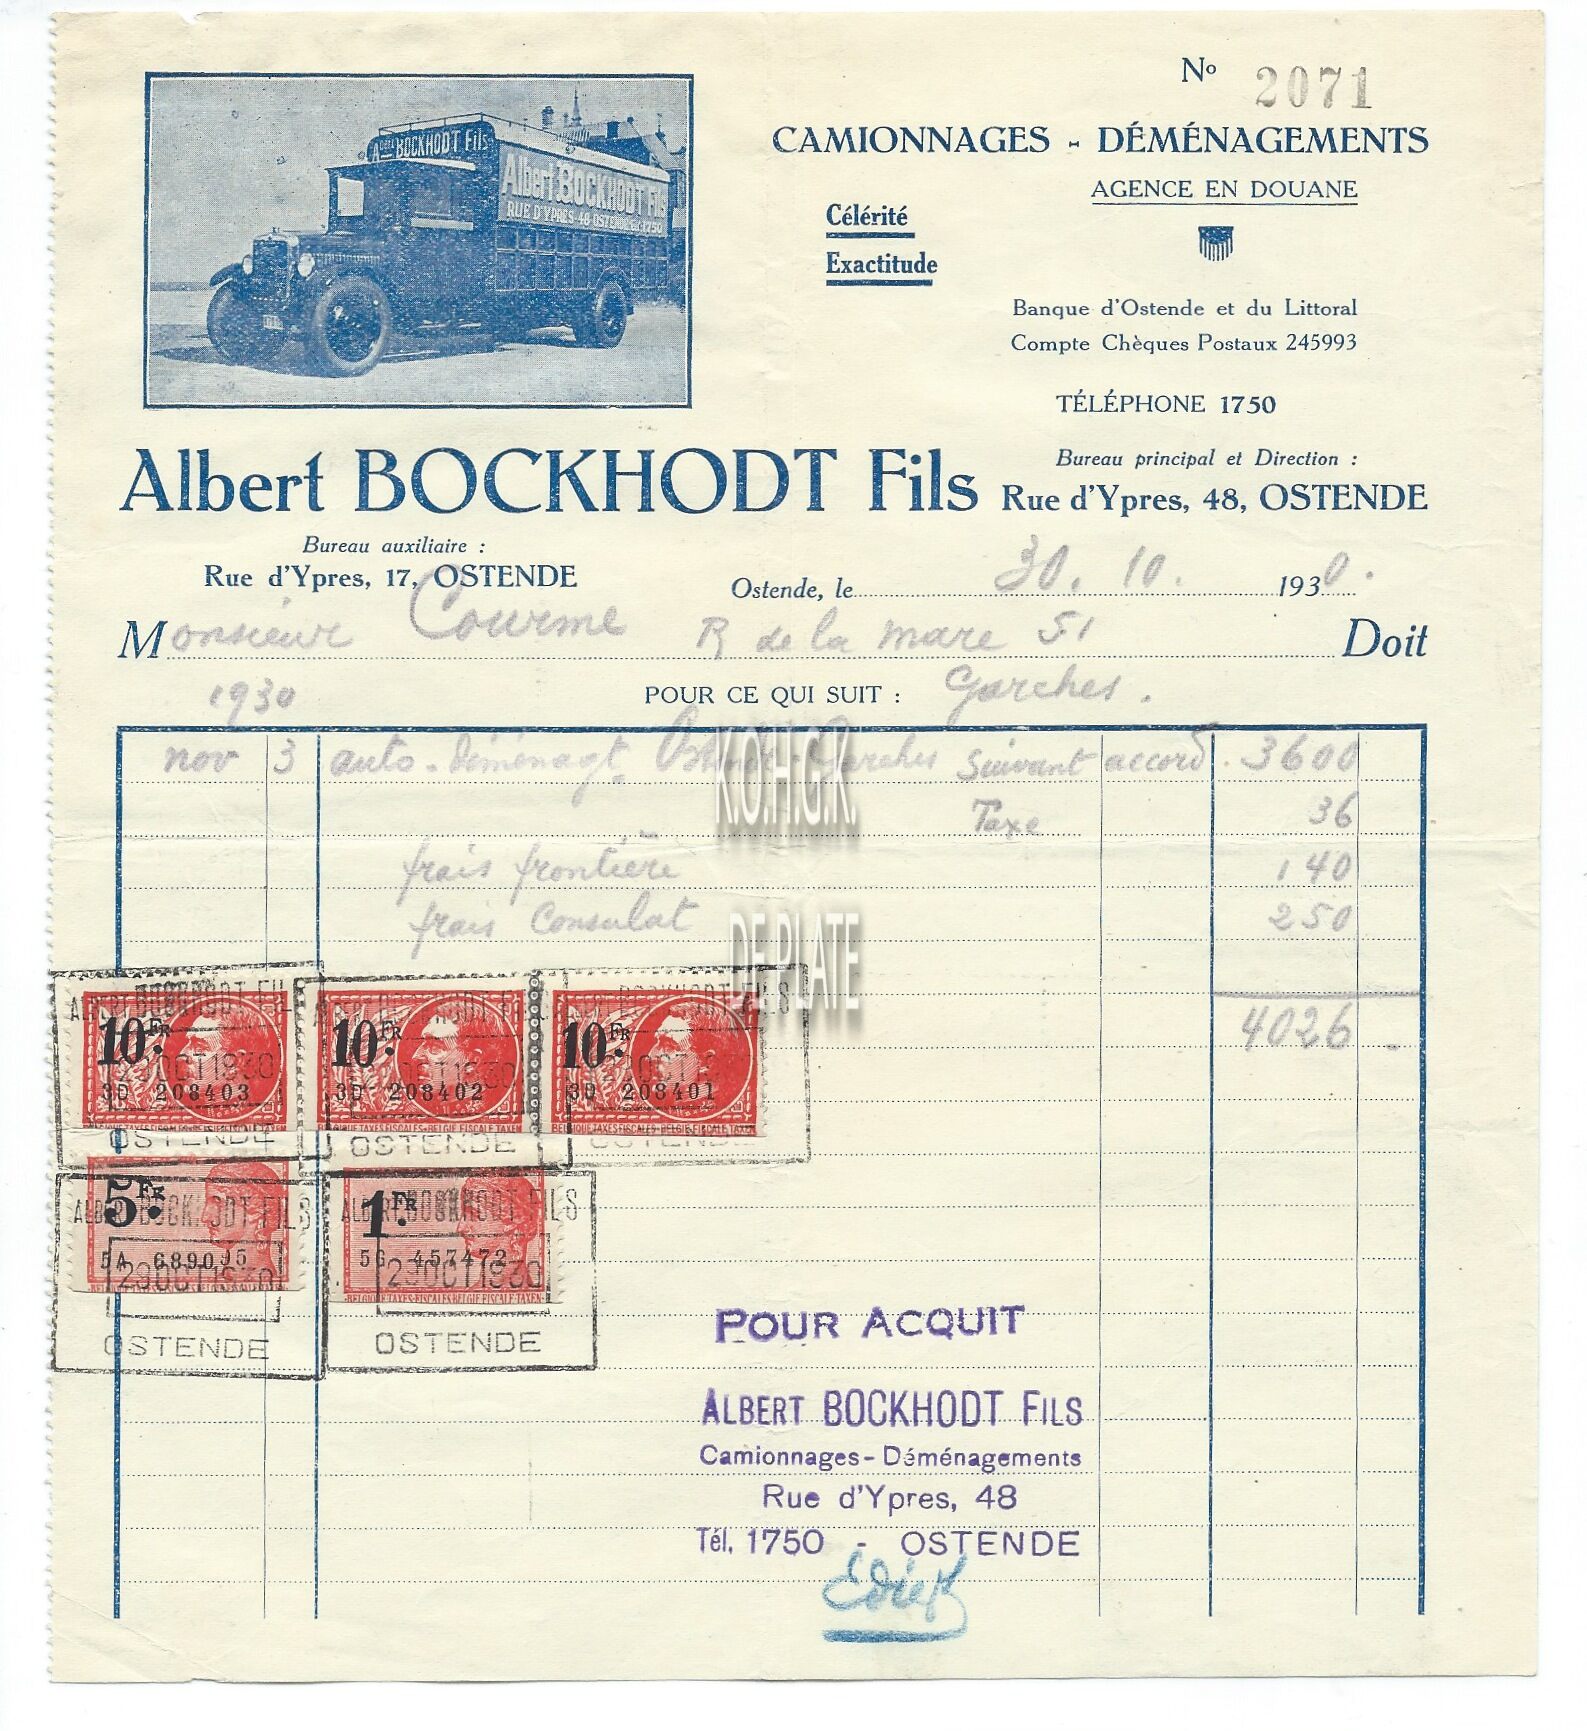 Nº 2071
CAMIONNAGES - DÉMÉNAGEMENTS
AGENCE EN DOUANE
Célérité
Exactitude
Albert BOCKHODT Fils
Albert BOCKHODT Fils
RUE D'YPRES-48-OSTENDE tel 1750
Banque d'Ostende et du Littoral
Compte Chèques Postaux 245993
TÉLÉPHONE 1750
Albert BOCKHODT Fils
Bureau principal et Direction :
Rue d'Ypres, 48, OSTENDE
Bureau auxiliaire :
Rue d'Ypres, 17, OSTENDE
Ostende, le 30. 10. 1930.
Monsieur Courme R de la mare 51 Doit
1930 POUR CE QUI SUIT : Garches.
nov 3 auto-déménagt Ostende-Garches suivant accord. 3600
Taxe 36
frais frontière 140
frais Consulat 250
4026
K.O.H.G.K.
DE PLATE
ALBERT BOCKHODT FILS
10 FR.
3D 208403
29 OCT 1930
BELGIQUE TAXES FISCALES-BELGIE FISCALE TAXEN
OSTENDE
ALBERT BOCKHODT FILS
10 FR.
3D 208402
29 OCT 1930
BELGIQUE TAXES FISCALES-BELGIE FISCALE TAXEN
OSTENDE
ALBERT BOCKHODT FILS
10 FR.
3D 208401
29 OCT
BELGIQUE TAXES FISCALES-BELGIE FISCALE TAXEN
OSTENDE
ALBERT BOCKHODT FILS
5 FR.
5A
29 OCT 1930
OSTENDE
ALBERT BOCKHODT FILS
1 FR.
5G 457472
29 OCT 1930
BELGIQUE-TAXES-FISCALES BELGIE FISCALE TAXEN
OSTENDE
POUR ACQUIT
ALBERT BOCKHODT FILS
Camionnages - Déménagements
Rue d'Ypres, 48
Tél. 1750 - OSTENDE